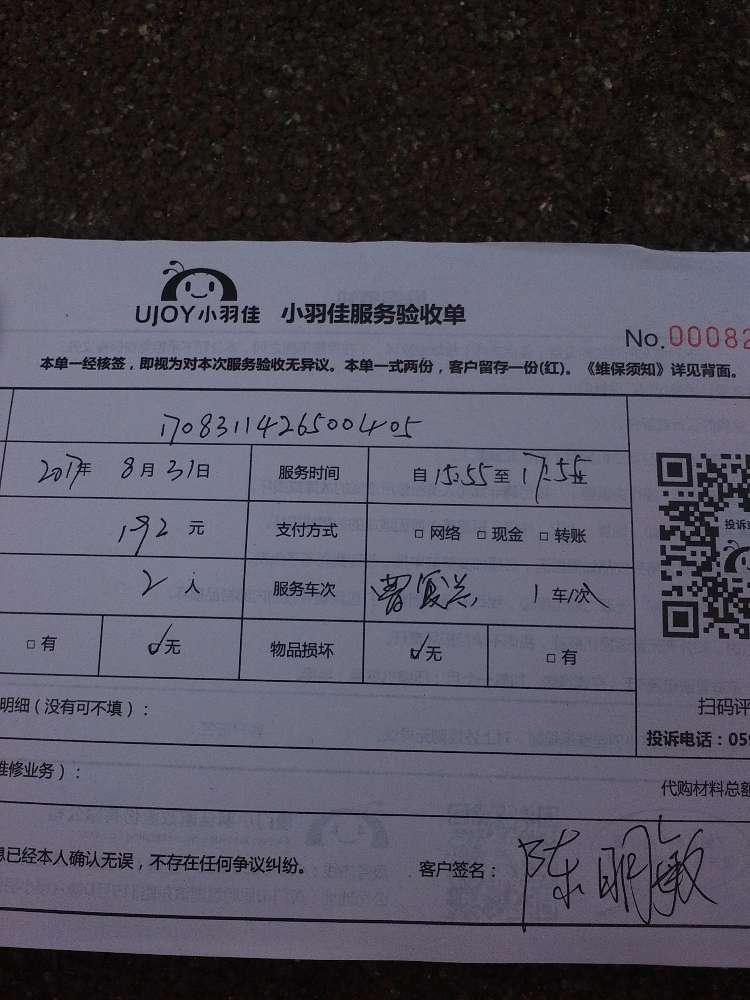 UJOY小羽佳 小羽佳服务验收单
No.00082
本单一经核签，即视为对本次服务验收无异议。本单一式两份，客户留存一份(红)。《维保须知》详见背面。
17083114265001405
2017年 8月31日 服务时间 自15:55至17:55
192 元 支付方式 □网络 □现金 □转账
投诉
2人 服务车次 1车/次
□有 ☑无 物品损坏 ☑无 □有
明细（没有可不填）：
扫码评
投诉电话：059
维修业务）：
代购材料总额
息已经本人确认无误，不存在任何争议纠纷。 客户签名： 陈明敏